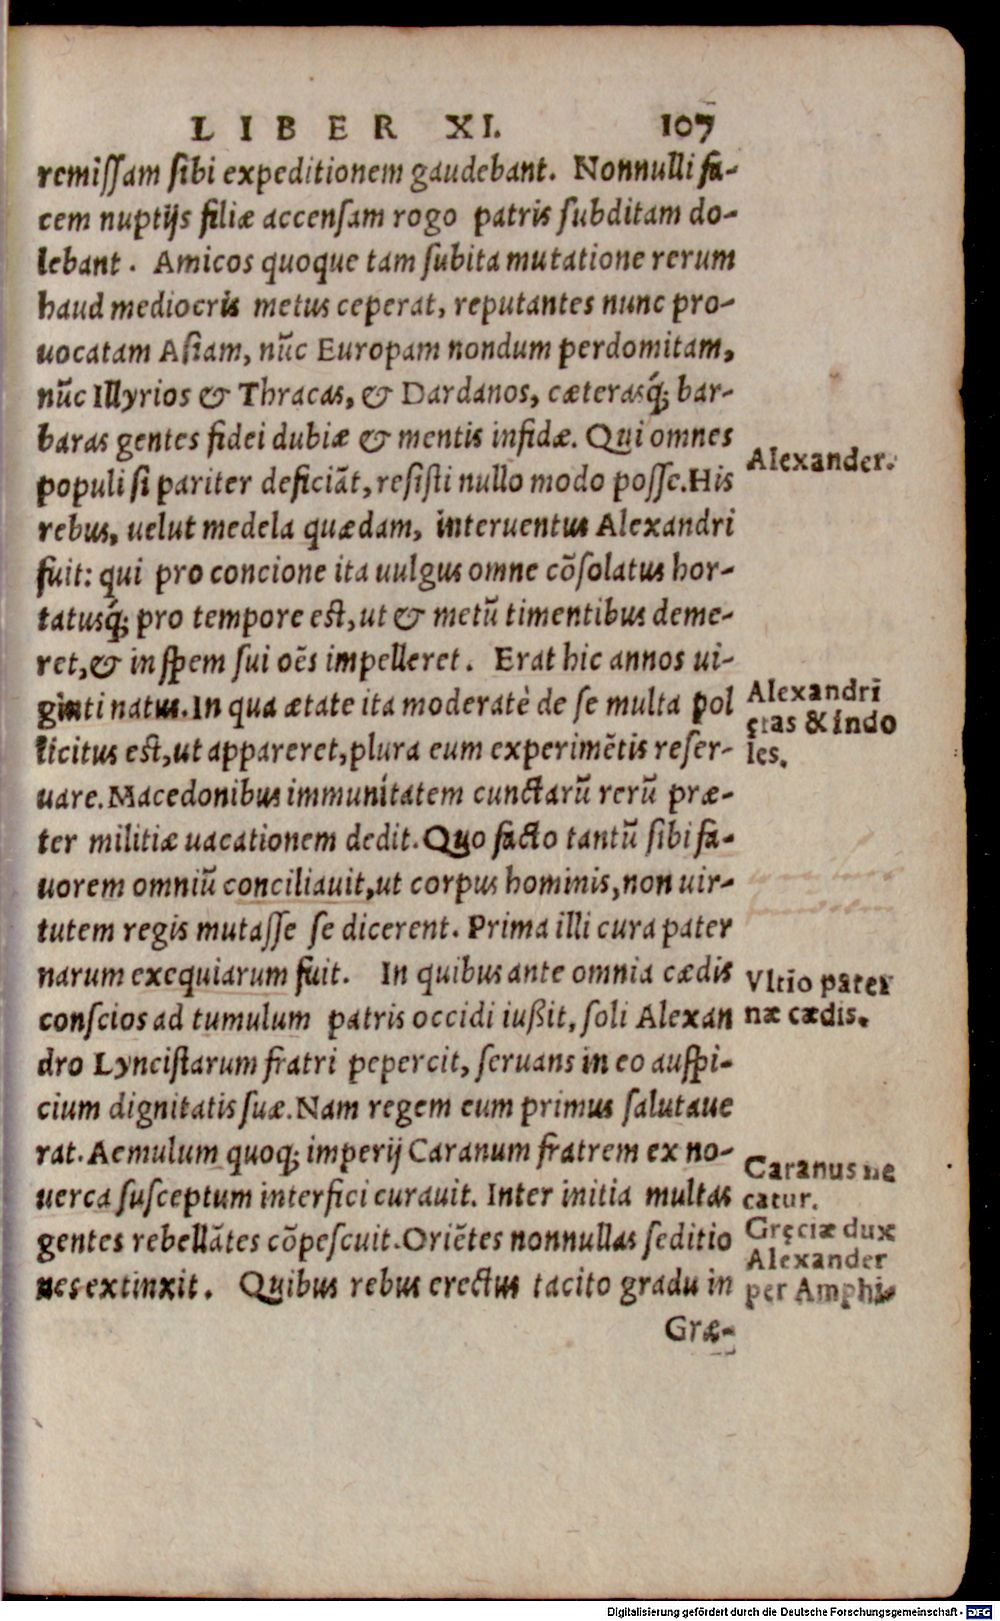 LIBER XI. 107
remissam sibi expeditionem gaudebant. Nonnulli fa-
cem nuptijs filiæ accensam rogo patris subditam do-
lebant. Amicos quoque tam subita mutatione rerum
haud mediocris metus ceperat, reputantes nunc pro-
uocatam Asiam, nũc Europam nondum perdomitam,
nũc Illyrios & Thracas, & Dardanos, cæterasq́; bar-
baras gentes fidei dubiæ & mentis infidæ. Qui omnes
populi si pariter deficiãt, resisti nullo modo posse. His
rebus, uelut medela quædam, interuentus Alexandri
fuit: qui pro concione ita uulgus omne cõsolatus hor-
tatusq́; pro tempore est, ut & metũ timentibus deme-
ret, & in spem sui oẽs impelleret. Erat hic annos ui-
ginti natus. In qua ætate ita moderatè de se multa pol
licitus est, ut appareret, plura eum experimẽtis reser-
uare. Macedonibus immunitatem cunctarũ rerũ præ-
ter militiæ uacationem dedit. Quo facto tantũ sibi fa-
uorem omniũ conciliauit, ut corpus hominis, non uir-
tutem regis mutasse se dicerent. Prima illi cura pater
narum exequiarum fuit. In quibus ante omnia cædis
conscios ad tumulum patris occidi iußit, soli Alexan
dro Lyncistarum fratri pepercit, seruans in eo auspi-
cium dignitatis suæ. Nam regem eum primus salutaue
rat. Aemulum quoq; imperij Caranum fratrem ex no-
uerca susceptum interfici curauit. Inter initia multas
gentes rebellãtes cõpescuit. Oriẽtes nonnullas seditio
nes extinxit. Quibus rebus erectus tacito gradu in
Græ-
Alexander.
Alexandri
ętas & indo
les.
Vltio pater
næ cædis.
Caranus ne
catur.
Gręciæ dux
Alexander
per Amphi-
Digitalisierung gefördert durch die Deutsche Forschungsgemeinschaft - DFG